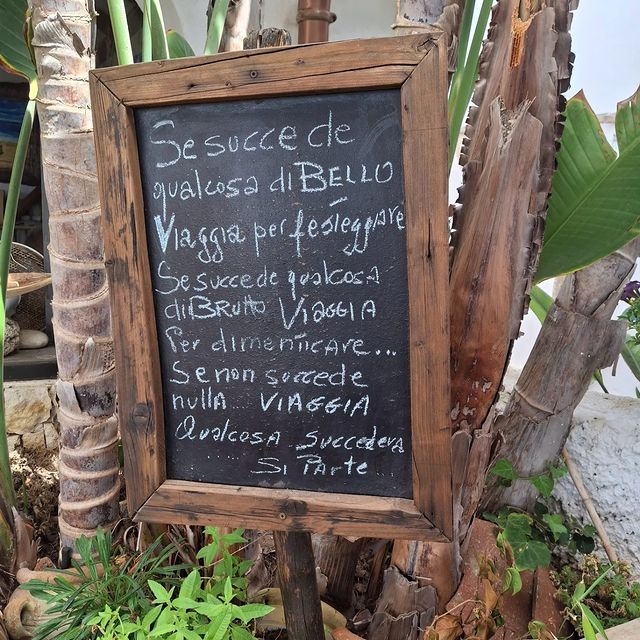 Se succede
qualcosa di BELLO
Viaggia per festeggiare
Se succede qualcosa
di BRutto VIAGGIA
Per dimenticare...
Se non succede
nulla VIAGGIA
Qualcosa Succederà
Si Parte